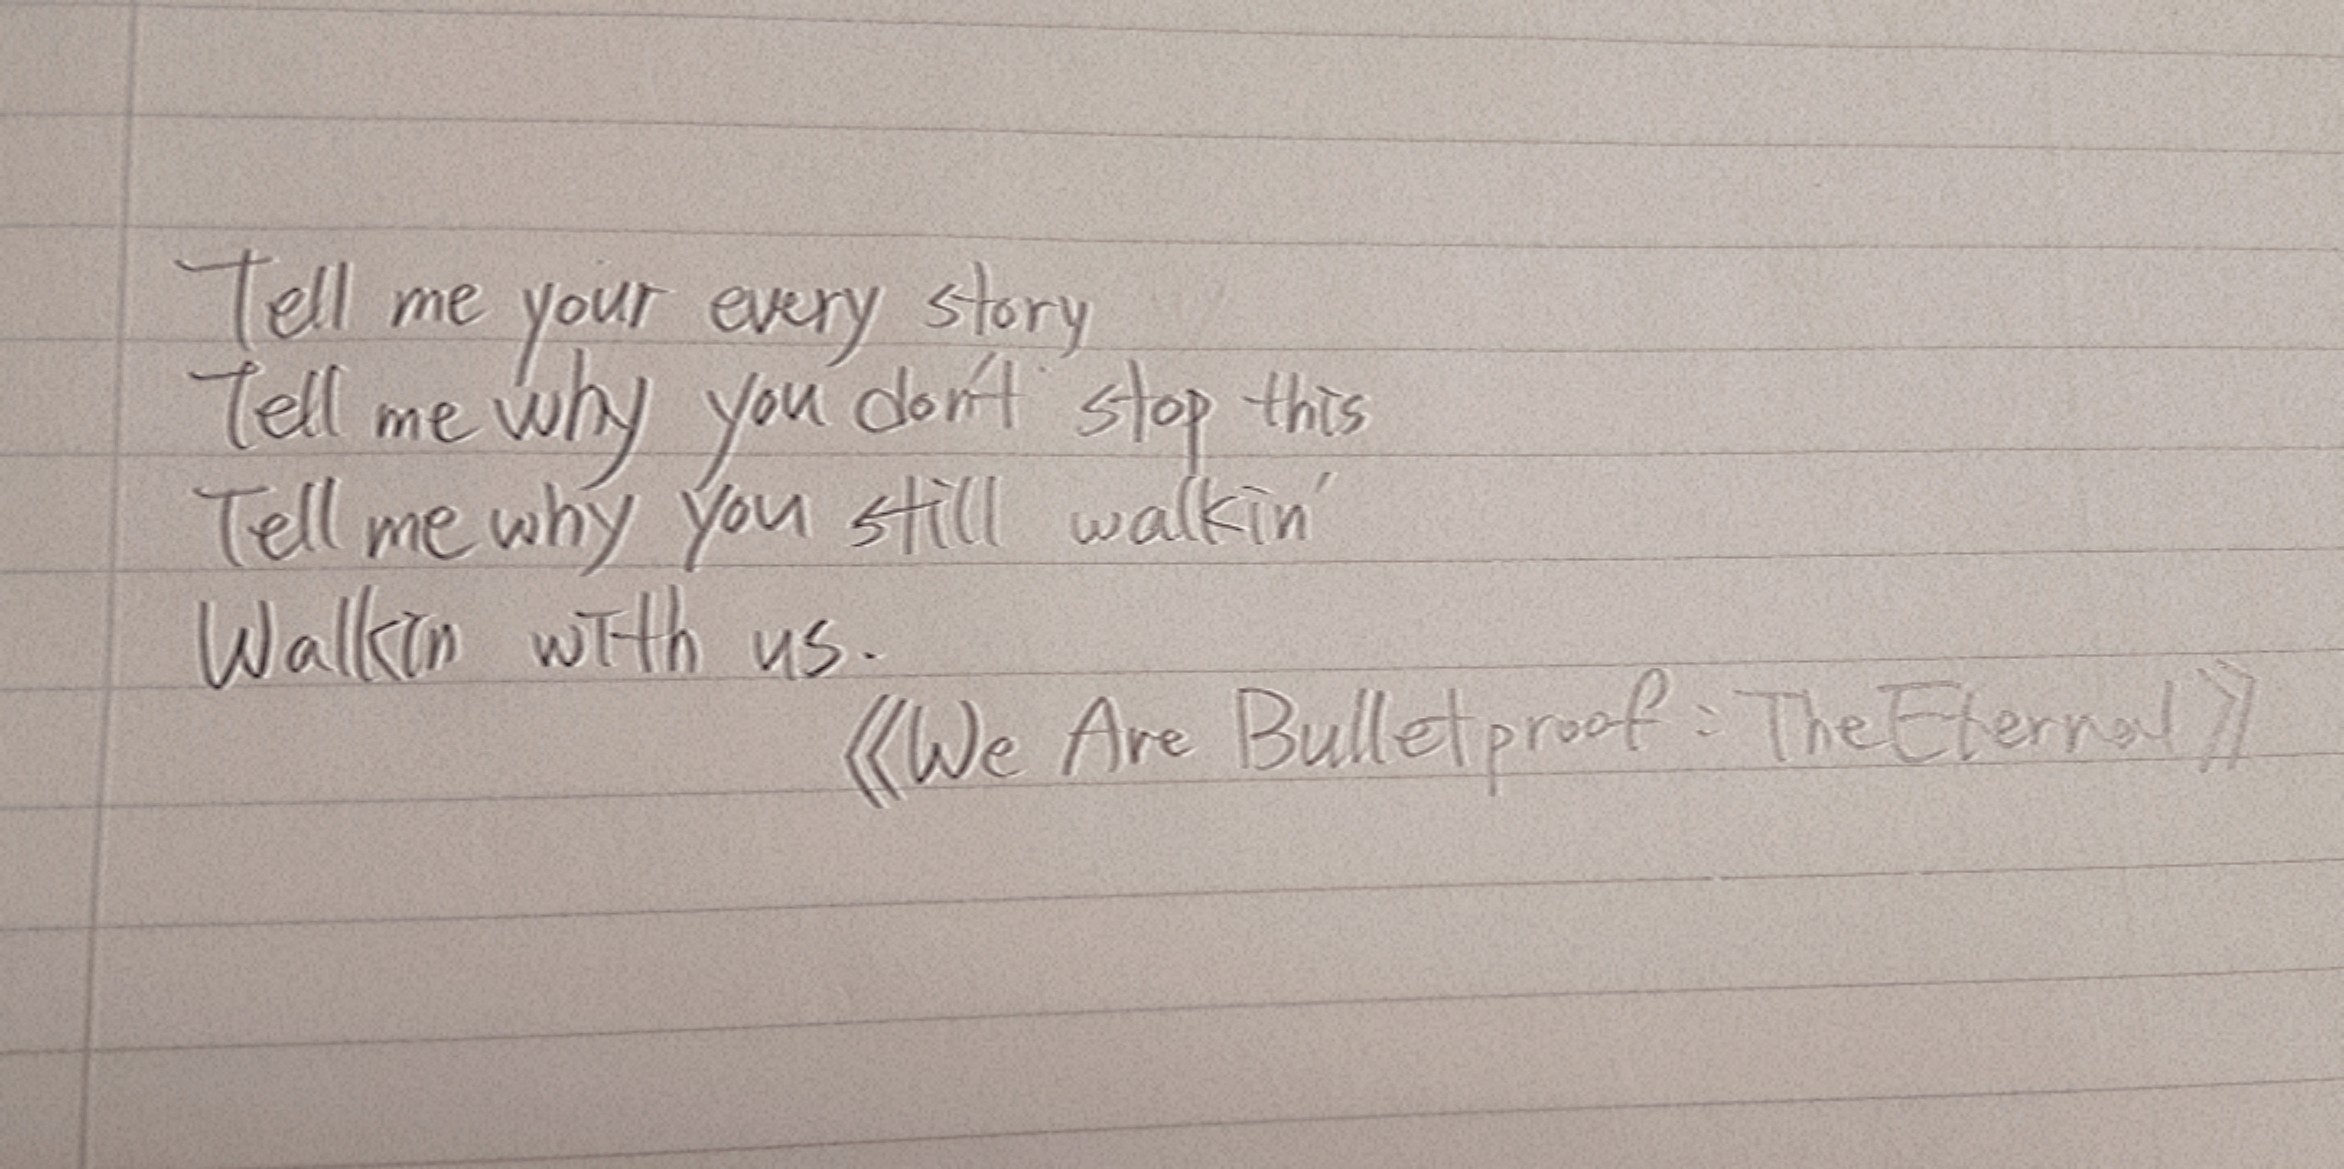 Tell me your every story
Tell me why you don't stop this
Tell me why you still walkin'
Walkin with us.
《We Are Bulletproof : The Eternal》